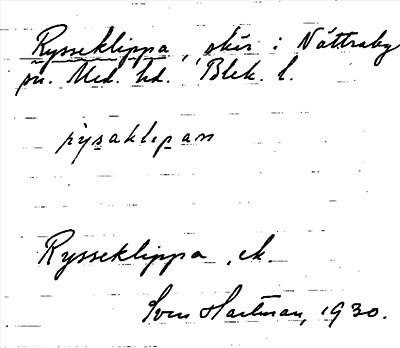 Rysseklippa, skär i Nättraby
sn. Med. hd. Blek. l.
rỳsaklịpan
Rysseklippa, ek.
Sven Hartman, 1930.